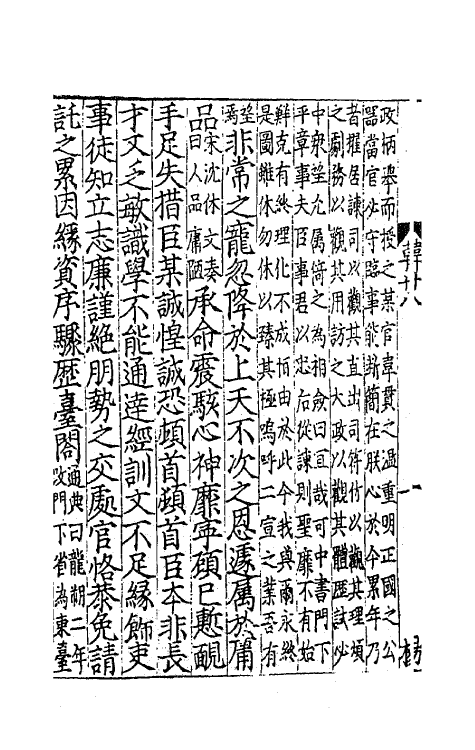 政柄舉而授之某官韋貫之溫重明正國之公
器當官必守臨事能斷簡在朕心於今累年乃
者擢居諫司以觀其直出司符竹以觀其理煩
之劇務以觀其用訪之大政以觀其體歷試必
中衆望允屬倚之為相僉曰宜哉可中書門下
平章事夫臣事君以忠后從諫則聖靡不有始
鮮克有終理化不成恒由於此今我與爾永終
是圖雖休勿休以臻其極嗚呼二宣之業吾有
望焉
非常之寵忽降於上天不次之恩遽屬於庸
品宋沈休文奏曰人品庸陋承命震駭心神靡寧顧已慙覥
手足失措臣某誠惶誠恐頓首頓首臣本非長
才又乏敏識學不能通達經訓文不足緣飾吏
事徒知立志廉謹絕朋勢之交處官恪恭免請
託之累因緣資序驟歷臺閣通典曰龍朔二年改門下省為東臺
韓廿八
一